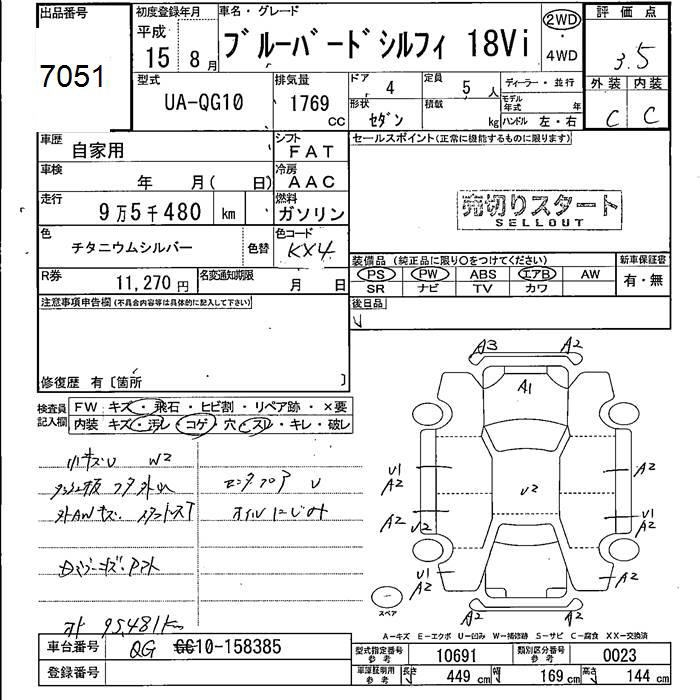 出品番号
7051
初度登録年月
平成
15年 8月
車名・グレード
ブルーバードシルフィ 18Vi
2WD
・
4WD
評価点
3.5
外装 内装
C C
型式
UA-QG10
排気量
1769
cc
ドア
4
形状
セダン
定員
5人
積載
kg
ディーラー・並行
モデル年式 年
ハンドル 左・右
車歴
自家用
シフト
FAT
車検
年 月( 日)
冷房
AAC
走行
9万5千480 km
燃料
ガソリン
色
チタニウムシルバー
色替
色コード
KX4
R券
11,270円
名変通知期限
月 日
セールスポイント(正常に機能するものに限ります)
売切りスタート
SELLOUT
装備品(純正品に限り○をつけてください)
PS PW ABS エアB AW
SR ナビ TV カワ
新車保証書
有・無
後日品
注意事項申告欄(不具合内容等は具体的に記入して下さい)
修復歴 有〔箇所 〕
検査員記入欄
FW キズ・飛石・ヒビ割・リペア跡・×要
内装 キズ・汚レ・コゲ・穴・スレ・キレ・破レ
小キズU W2
外AWキズ
オイルにじみ
オド 95,481km
A3 A2
A1
U1
A2
A2
U2
U2
A2
U1
A2
U1
A2
A2
A2
A2
スペア
A-キズ E-エクボ U-凹み W-補修跡 S-サビ C-腐食 XX-交換済
車台番号
QG GC10-158385
登録番号
型式指定番号
参考
10691
類別区分番号
参考
0023
車庫証明用
参考
長さ 449 cm 幅 169 cm 高さ 144 cm